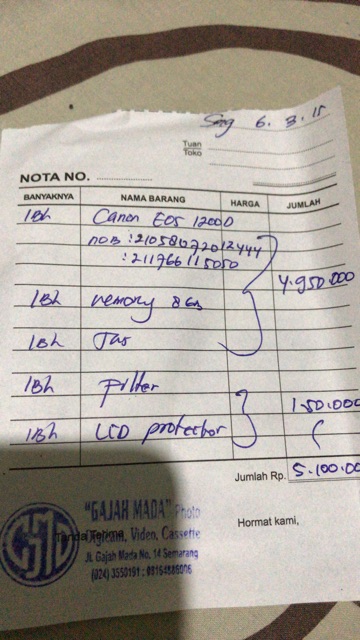 Smg 6.3.15
Tuan
Toko
NOTA NO.
BANYAKNYA NAMA BARANG HARGA JUMLAH
1Bh Canon EOS 1200D
noB : 21058072012444
: 211766115050
4.950.000
1Bh memory 8GB
1Bh Tas
1Bh Filter
150.000
1Bh LCD protector
Jumlah Rp. 5.100.00
"GAJAH MADA" Photo
Tanda Terima
Digicam, Video, Cassette
Hormat kami,
Jl. Gajah Mada No. 14 Semarang
(024) 3550191 ; 08164886006